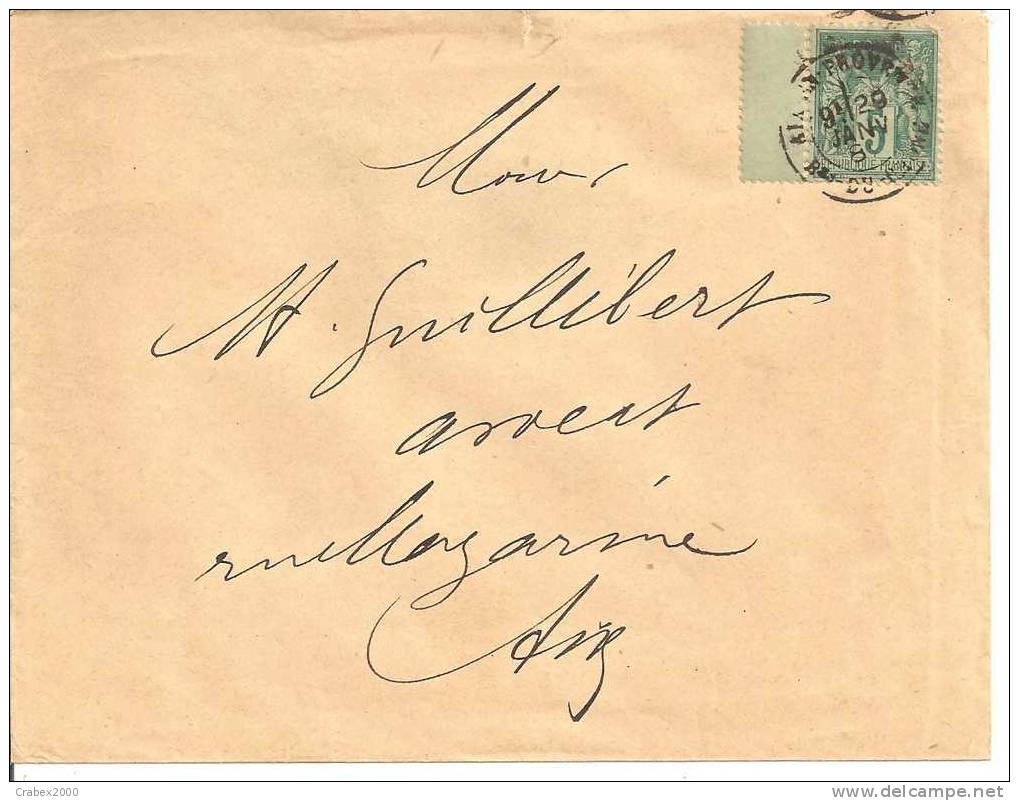 AIX-EN-PROVENCE
9E/29
JANV
5
REPUBLIQUE FRANCAISE
Bches-DU-RHONE
Monsr
H. Guillibert
avocat
rue Mazarine
Aix
Crabex2000
www.delcampe.net